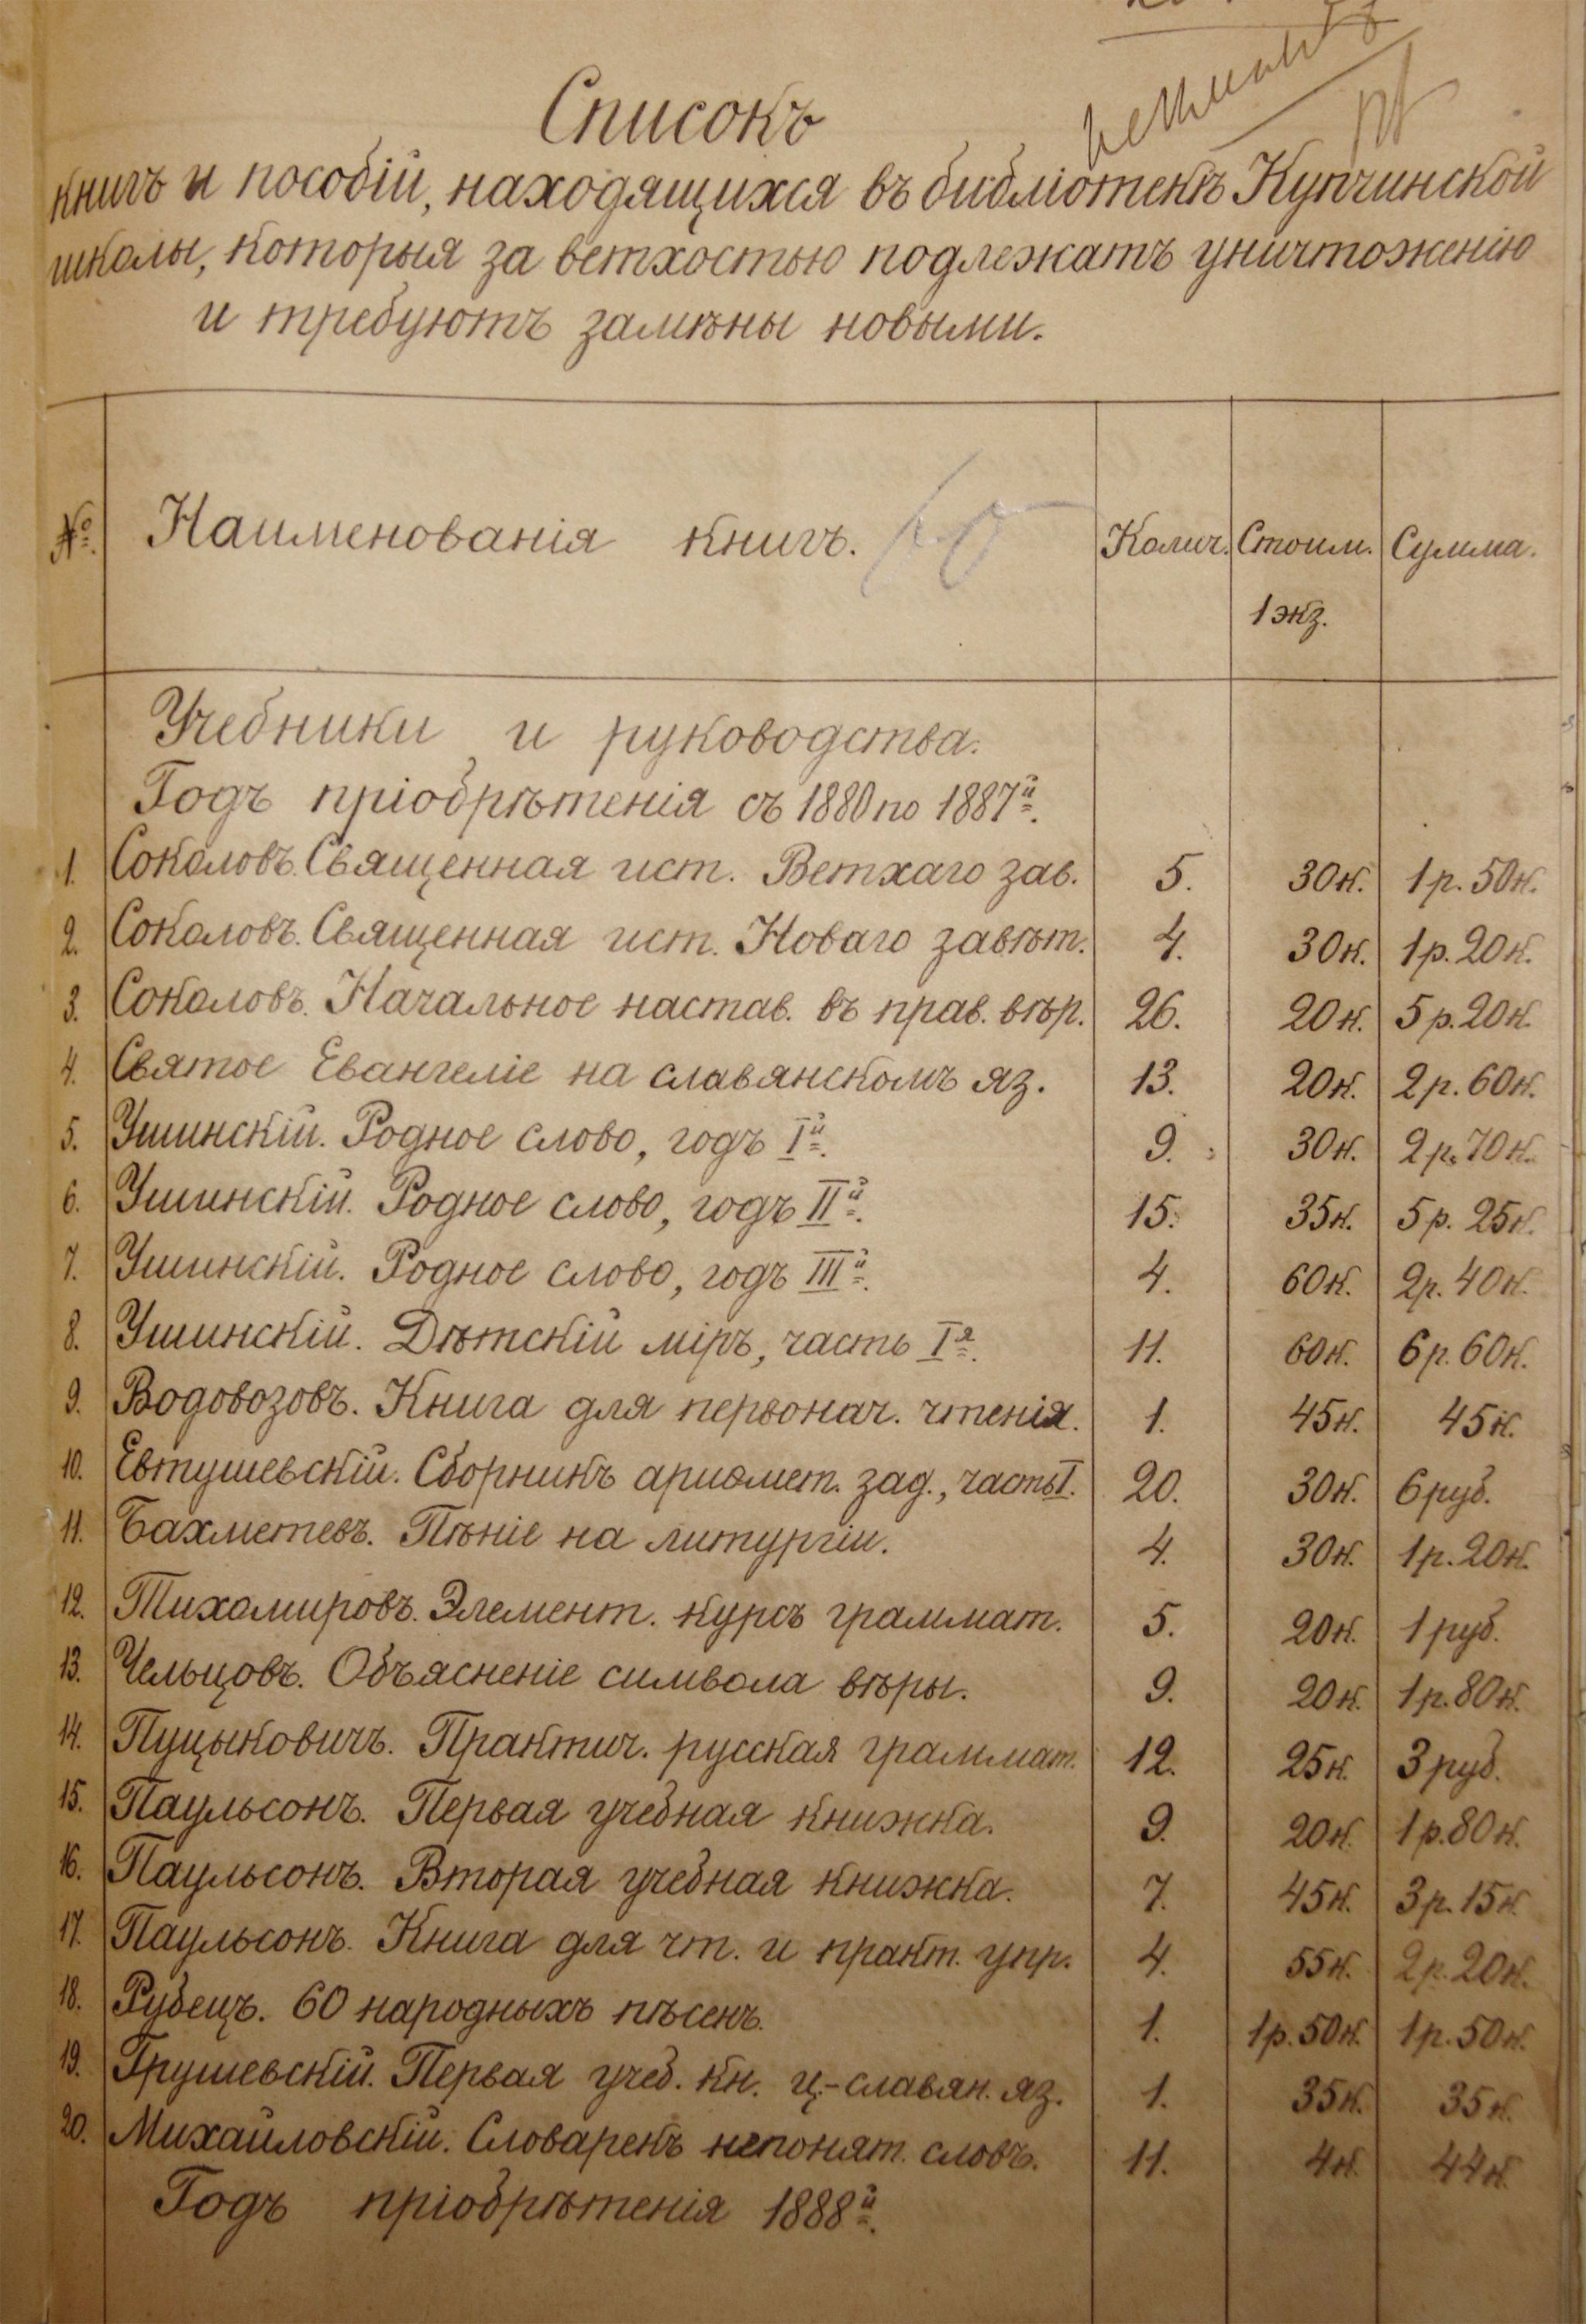 Списокъ
книгъ и пособій, находящихся въ библіотекѣ Купчинской
школы, которыя за ветхостью подлежатъ уничтоженію
и требуютъ замѣны новыми.
№ Наименованія книгъ. Колич. Стоим. 1 экз. Сумма.
Учебники и руководства.
Годъ пріобрѣтенія съ 1880 по 1887й.
1. Соколовъ. Священная ист. Ветхаго зав. 5. 30к. 1р. 50к.
2. Соколовъ. Священная ист. Новаго завѣт. 4. 30к. 1р. 20к.
3. Соколовъ. Начальное настав. въ прав. вѣр. 26. 20к. 5р. 20к.
4. Святое Евангеліе на славянскомъ яз. 13. 20к. 2р. 60к.
5. Ушинскій. Родное слово, годъ Iй. 9. 30к. 2р. 70к.
6. Ушинскій. Родное слово, годъ IIй. 15. 35к. 5р. 25к.
7. Ушинскій. Родное слово, годъ IIIй. 4. 60к. 2р. 40к.
8. Ушинскій. Дѣтскій міръ, часть Iя. 11. 60к. 6р. 60к.
9. Водовозовъ. Книга для первонач. чтенія. 1. 45к. 45к.
10. Евтушевскій. Сборникъ ариѳмет. зад., часть I. 20. 30к. 6 руб.
11. Бахметевъ. Пѣніе на литургіи. 4. 30к. 1р. 20к.
12. Тихомировъ. Элемент. курсъ граммат. 5. 20к. 1 руб.
13. Чельцовъ. Объясненіе символа вѣры. 9. 20к. 1р. 80к.
14. Пуцыковичъ. Практич. русская граммат. 12. 25к. 3 руб.
15. Паульсонъ. Первая учебная книжка. 9. 20к. 1р. 80к.
16. Паульсонъ. Вторая учебная книжка. 7. 45к. 3р. 15к.
17. Паульсонъ. Книга для чт. и практ. упр. 4. 55к. 2р. 20к.
18. Рубецъ. 60 народныхъ пѣсенъ. 1. 1р. 50к. 1р. 50к.
19. Грушевскій. Первая учеб. кн. ц.-славян. яз. 1. 35к. 35к.
20. Михайловскій. Словарекъ непонят. словъ. 11. 4к. 44к.
Годъ пріобрѣтенія 1888й.